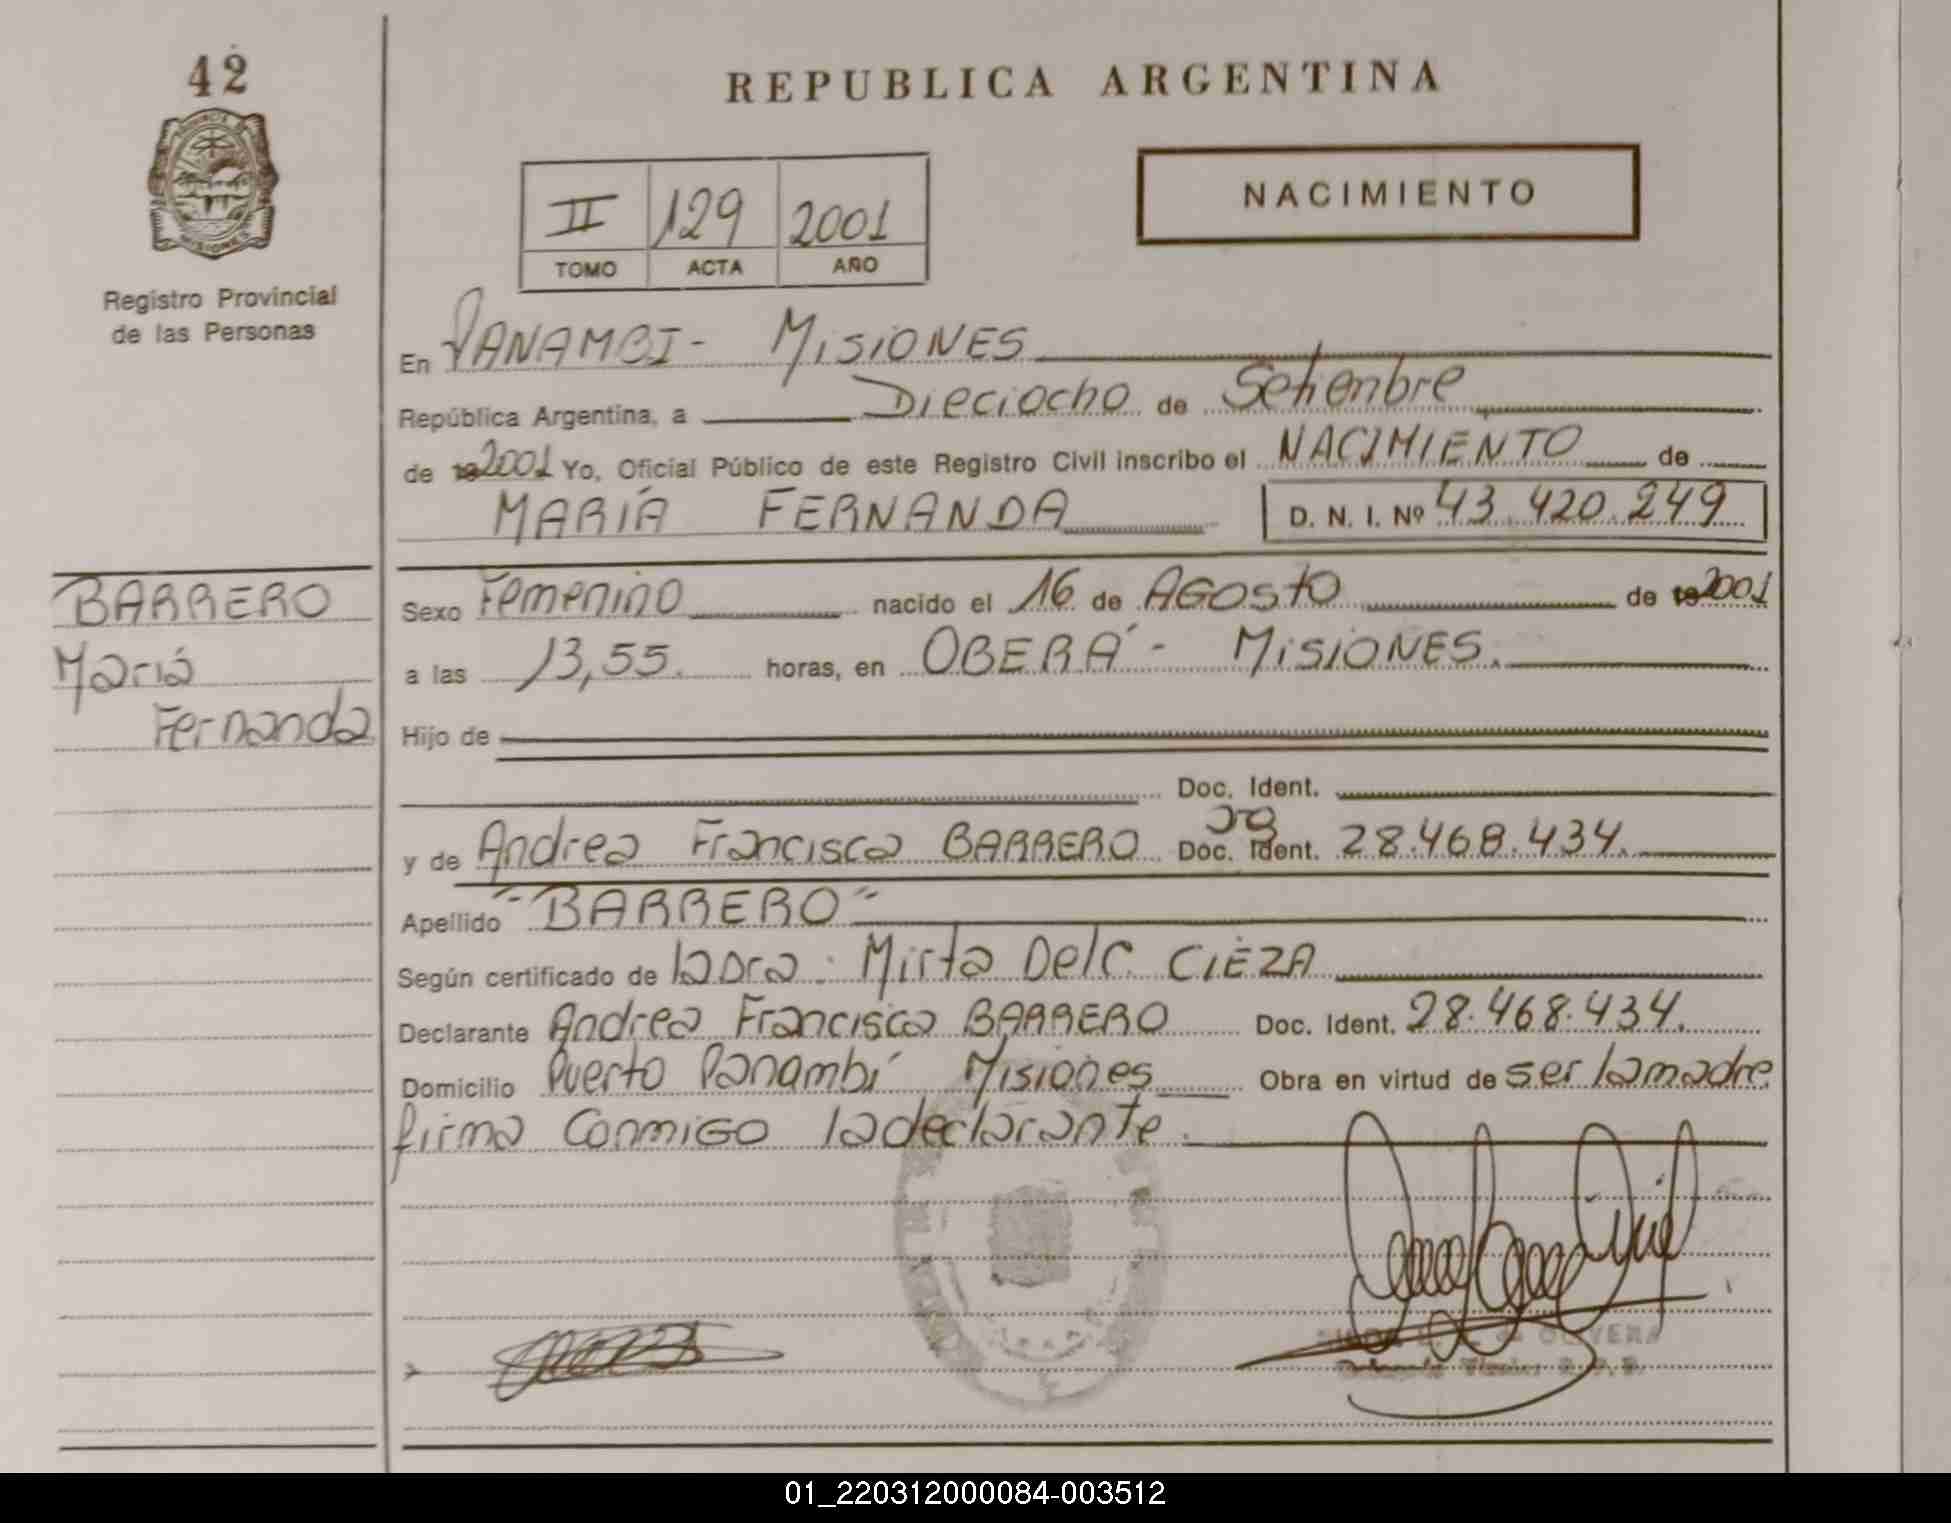 42
REPUBLICA ARGENTINA
II 129 2001
TOMO ACTA AÑO
NACIMIENTO
Registro Provincial
de las Personas
En PANAMBI - MISIONES
República Argentina, a Dieciocho de Setienbre
de 19 2001 Yo, Oficial Público de este Registro Civil inscribo el NACIMIENTO de
MARÍA FERNANDA D. N. I. Nº 43.420.249
BARRERO
María
Fernanda
Sexo Femenino nacido el 16 de AGOSTO de 19 2001
a las 13,55. horas, en OBERÁ - MISIONES.
Hijo de
Doc. Ident.
y de Andrea Francisca BARRERO Doc. Ident. 28.468.434.
Apellido "BARRERO"
Según certificado de la Dra. Mirta Del C. CIEZA
Declarante Andrea Francisca BARRERO Doc. Ident. 28.468.434.
Domicilio Puerto Panambí Misiones Obra en virtud de ser la madre
firma Conmigo la declarante.
OLIVERA
01_220312000084-003512